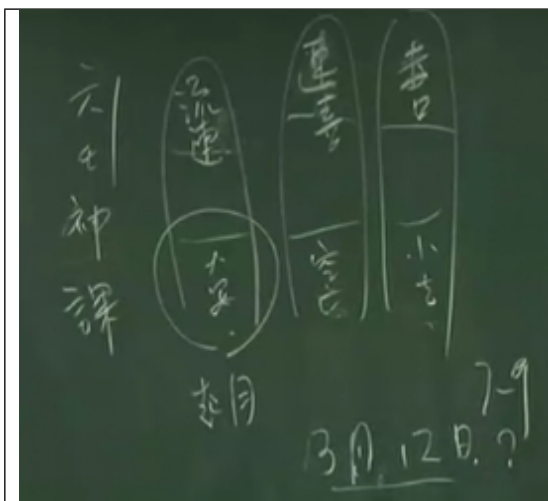 六壬神課
流連
大安
速喜
空亡
赤口
小吉
起月
7-9
3月,12日,?